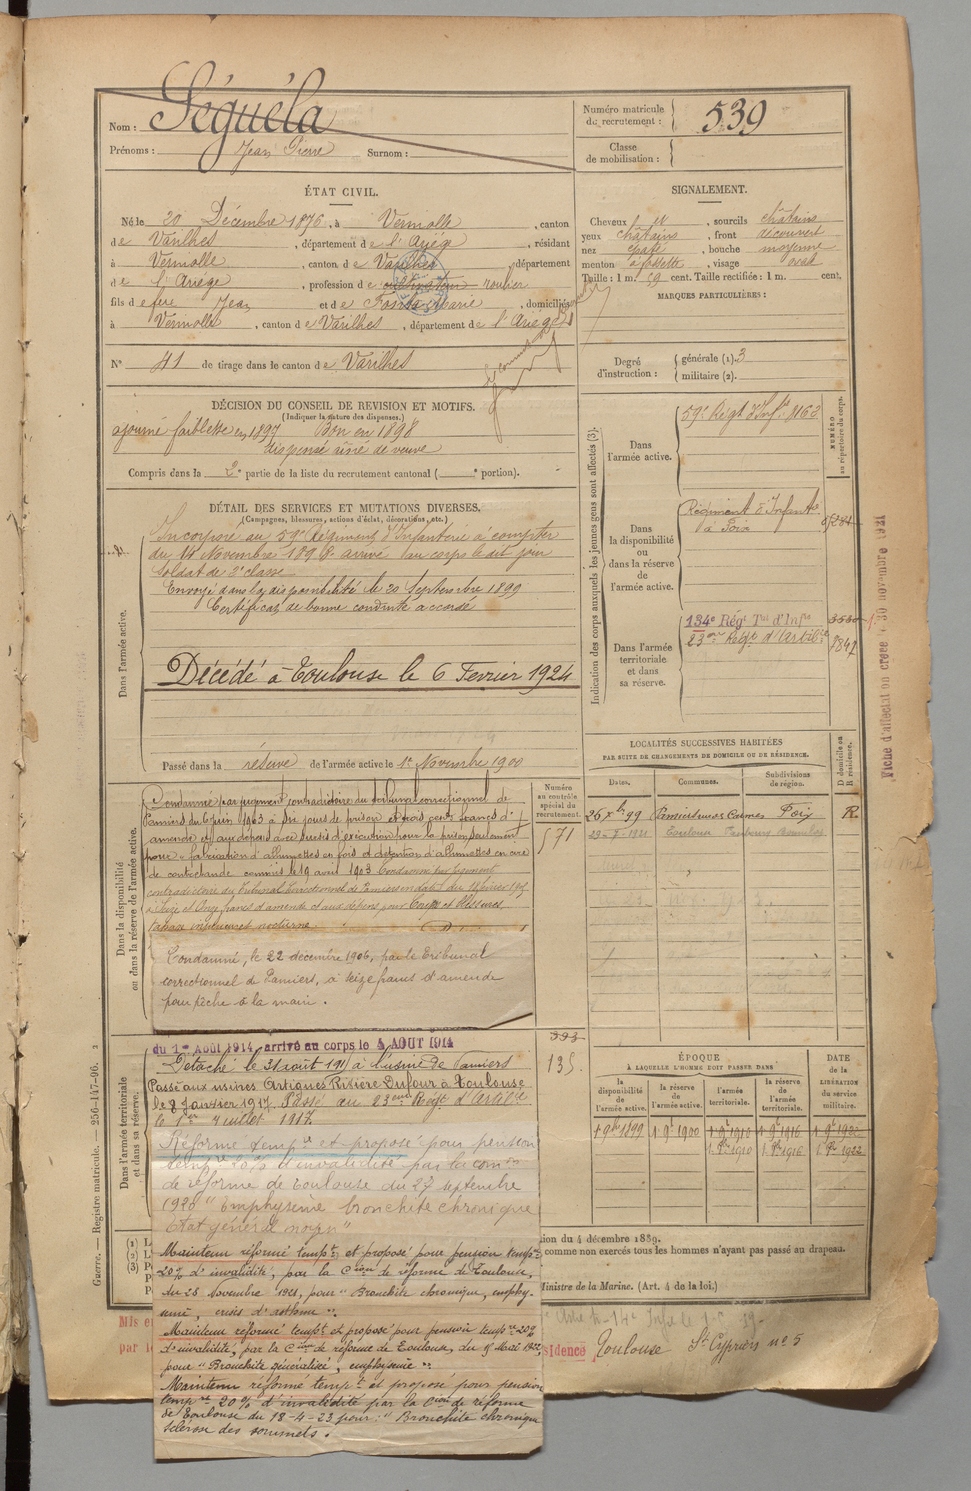 Nom : Séguéla
Prénoms : Jean Pierre Surnom :
Numéro matricule du recrutement : 539
Classe de mobilisation :
ÉTAT CIVIL.
Né le 20 Décembre 1876, à Verniolle, canton
de Varilhes, département de l'Ariége, résidant
à Verniolle, canton de Varilhes, département
de l'Ariége, profession de cultivateur roulier
fils de feu Jean et de Marie, domiciliés
à Verniolle, canton de Varilhes, département de l'Ariége
N° 41 de tirage dans le canton de Varilhes
SIGNALEMENT.
Cheveux et, sourcils châtains
yeux châtains, front découvert
nez épaté, bouche moyenne
menton à fossette, visage ovale
Taille : 1 m. 59 cent. Taille rectifiée : 1 m. cent.
MARQUES PARTICULIÈRES :
Degré d'instruction : générale (1). 3
militaire (2).
DÉCISION DU CONSEIL DE REVISION ET MOTIFS.
(Indiquer la nature des dispenses.)
ajourné faiblesse en 1897 Bon en 1898
dispensé aîné de veuve
Compris dans la 2e partie de la liste du recrutement cantonal ( portion).
DÉTAIL DES SERVICES ET MUTATIONS DIVERSES.
(Campagnes, blessures, actions d'éclat, décorations, etc.)
Dans l'armée active.
Incorporé au 59e Régiment d'Infanterie à compter
du 14 Novembre 1898 arrivé au corps le dit jour
soldat de 2e classe
Envoyé dans la disponibilité le 20 Septembre 1899
Certificat de bonne conduite accordé
Décédé à Toulouse le 6 Fevrier 1924
Passé dans la réserve de l'armée active le 1er Novembre 1900
Indication des corps auxquels les jeunes gens sont affectés (3).
NUMÉRO au répertoire du corps.
Dans l'armée active.
59e Régt d'Inft. 8162
Dans la disponibilité ou dans la réserve de l'armée active.
Régiment d'Infanterie
à Foix
Dans l'armée territoriale et dans sa réserve.
134e Régt Tal d'Infie
23eme Régt d'Artilie
Fiche d'affectation créée 30 novembre 1921
LOCALITÉS SUCCESSIVES HABITÉES
PAR SUITE DE CHANGEMENTS DE DOMICILE OU DE RÉSIDENCE.
Dates. Communes. Subdivisions de région. D domicile ou R résidence.
26 xbre 99 Pamiers Foix R.
Dans la disponibilité ou dans la réserve de l'armée active.
Numéro au contrôle spécial du recrutement
571
Condamné par jugement contradictoire du tribunal correctionnel de
Pamiers du 6 juin 1903 à six jours de prison et trois cents francs d'
amende et aux dépens avec sursis d'exécution pour la prison seulement
pour « fabrication d'allumettes en bois et détention d'allumettes en cire
de contrebande commis le 19 avril 1903. Condamné par jugement
contradictoire du Tribunal Correctionnel de Pamiers en date du
à Seize et Onze francs d'amende et aux dépens pour Coups et Blessures
tapage injurieux nocturne.
Condamné, le 22 décembre 1906, par le Tribunal
correctionnel de Pamiers, à seize francs d'amende
pour pêche à la main.
Dans l'armée territoriale et dans sa réserve.
du 1er Août 1914, arrivé au corps le 4 AOUT 1914
Détaché le 31 août 191 à l'usine de Pamiers
Passé aux usines Artigues Rivière Dufour à Toulouse
le 8 Janvier 1917. Passé au 23eme Régt d'Artilie
le 1er Juillet 1917
Réformé tempre et proposé pour pension
tempre 20% d'invalidité par la comon
de réforme de Toulouse du 27 septembre
1920 "Emphysème bronchite chronique
Etat général moyen"
Maintenu réformé tempt. et proposé pour pension tempre
20% d'invalidité, par la Cion de réforme de Toulouse,
du 25 Novembre 1921, pour "Bronchite chronique, emphy-
sème, crises d'asthme".
Maintenu réformé tempt et proposé pour pension tempre 20%
d'invalidité, par la Cion de réforme de Toulouse, du 9 Mai 1922,
pour "Bronchite généralisée, emphysème".
Maintenu réformé tempt et proposé pour pension
tempre 20% d'invalidité par la Cion de réforme
de Toulouse du 18-4-23 pour : "Bronchite chronique
sclérose des sommets.
393
135
ÉPOQUE
À LAQUELLE L'HOMME DOIT PASSER DANS
la disponibilité de l'armée active.
la réserve de l'armée active.
l'armée territoriale.
la réserve de l'armée territoriale.
DATE de la LIBÉRATION du service militaire.
1 9bre 1899 1 9e 1900 1 9e 1910 1 9e 1916 1 9e 1922
1. 8bre 1910 1. 8bre 1916 1. 8bre 1922
ion du 4 décembre 1889.
comme non exercés tous les hommes n'ayant pas passé au drapeau.
Ministre de la Marine. (Art. 4 de la loi.)
(1)
(2)
(3)
Guerre. — Registre matricule. — 256-147-96.
Mis en
par
sidence Toulouse St Cyprien n° 5